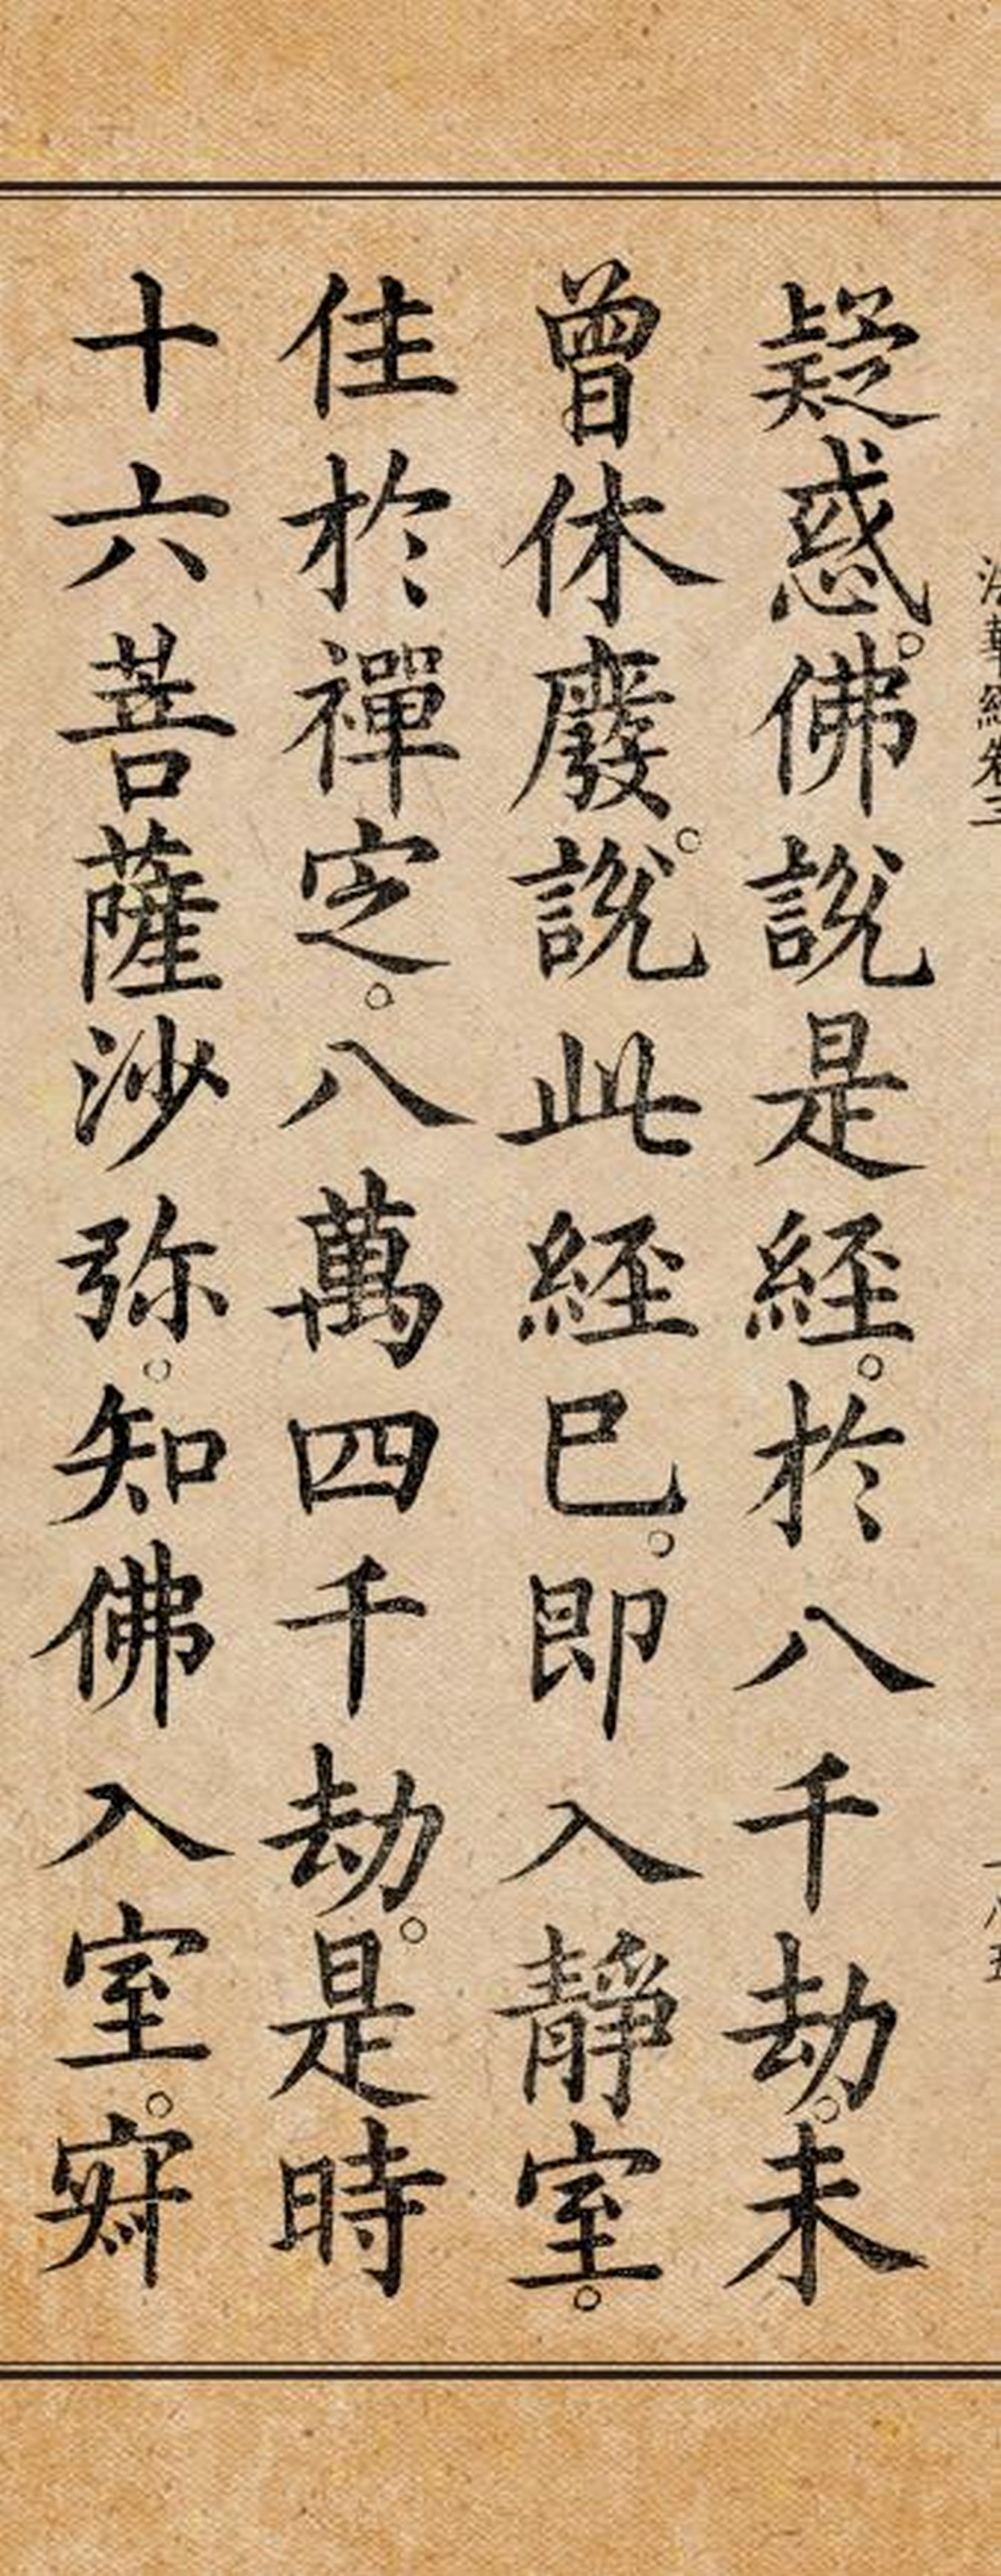 疑惑。佛說是経。於八千劫。未
曾休廢。說此経已。即入靜室。
住於禪定。八萬四千劫。是時
十六菩薩沙弥。知佛入室。寂